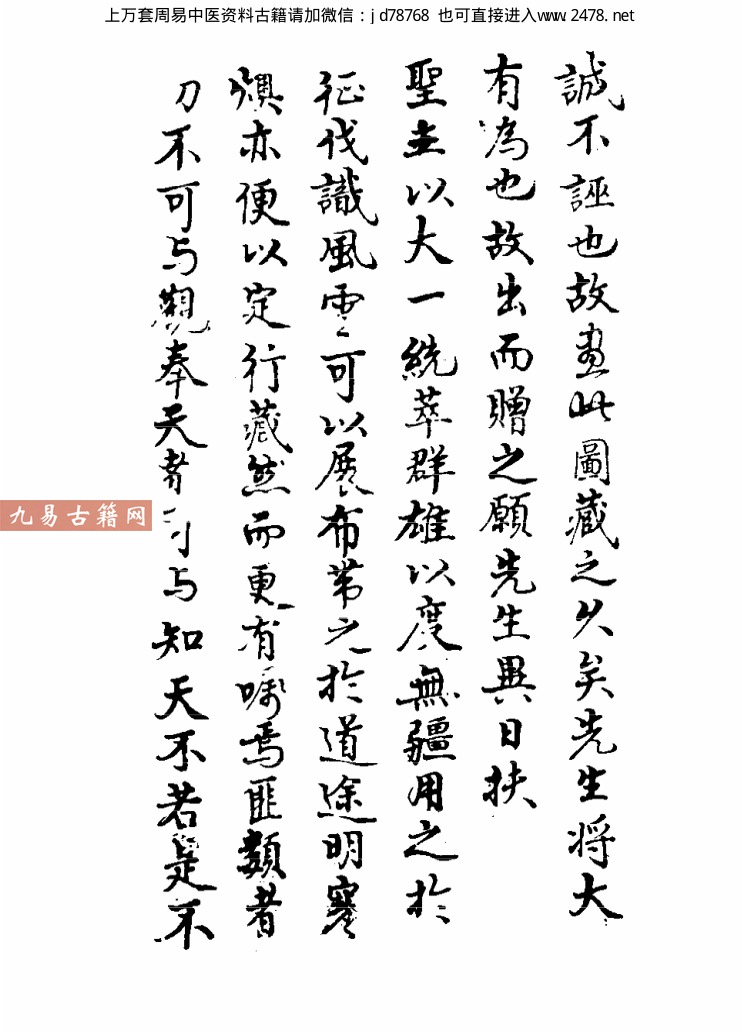 上万套周易中医资料古籍请加微信：jd78768 也可直接进入www.2478.net
誠不誣也故畫此圖藏之久矣先生将大
有為也故出而贈之願先生異日扶
聖主以大一統萃群雄以度無疆用之於
征伐識風雲可以展布带之於道途明寒
燠亦便以定行藏然而更有嘱焉匪類者
刀不可与觀奉天者可与知天不若是不
九易古籍网